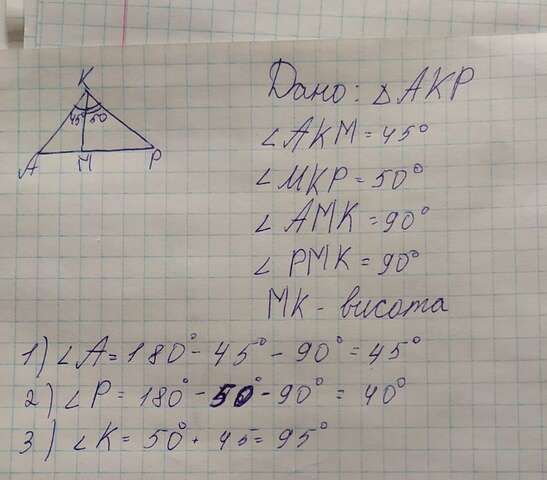 K
45° 50
A M P
Дано: △AKP
∠AKM=45°
∠MKP=50°
∠AMK=90°
∠PMK=90°
MK - висота
1) ∠A=180°-45°-90°=45°
2) ∠P=180°-50°-90°=40°
3) ∠K=50°+45=95°